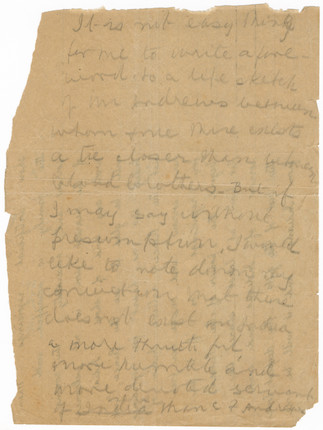 It is not easy thing
for me to write a fore
word to a life sketch
of Mr Andrews between
whom & me there exists
a tie closer than between
blood brothers. But if
I may say without
presumption, I would
like to note down my
conviction that there
does not exist in India
a more truthful
more humble and
more devoted servant
of India than C F Andrews